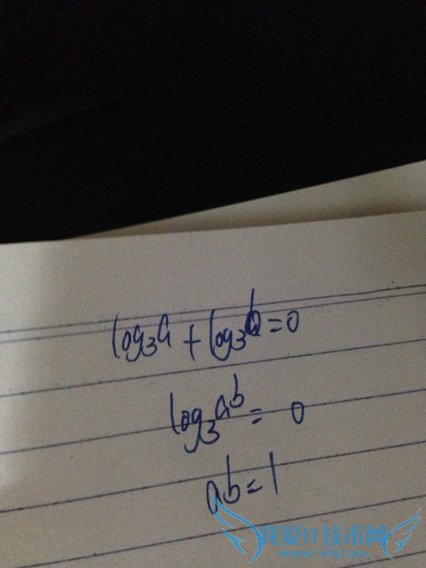 log₃a + log₃b = 0
log₃ab = 0
ab = 1